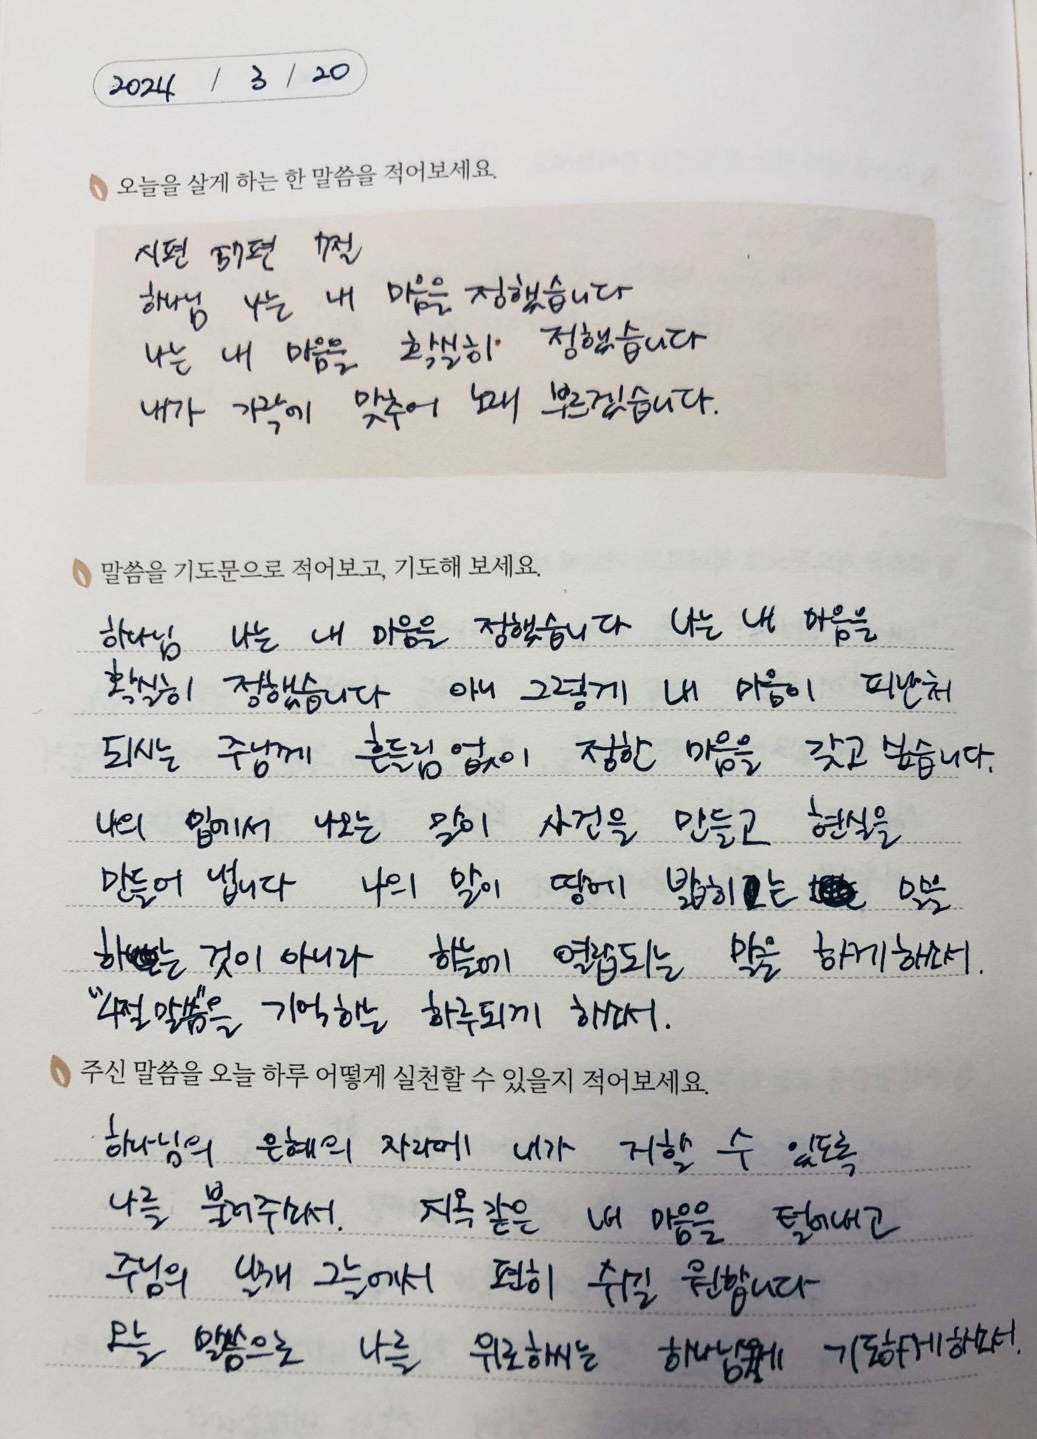 2024 / 3 / 20
오늘을 살게 하는 한 말씀을 적어보세요.
시편 57편 7절
하나님 나는 내 마음을 정했습니다
나는 내 마음을 확실히 정했습니다
내가 가락에 맞추어 노래 부르겠습니다.
말씀을 기도문으로 적어보고, 기도해 보세요.
하나님 나는 내 마음을 정했습니다 나는 내 마음을
확실히 정했습니다 아니 그렇게 내 마음이 피난처
되시는 주님께 흔들림 없이 정한 마음을 갖고 싶습니다.
나의 입에서 나오는 말이 사건을 만들고 현실을
만들어 냅니다 나의 말이 땅에 밟히는 말을
하는 것이 아니라 하늘에 열납되는 말을 하게하소서.
"4절 말씀"을 기억하는 하루되게 하소서.
주신 말씀을 오늘 하루 어떻게 실천할 수 있을지 적어보세요.
하나님의 은혜의 자리에 내가 거할 수 있도록
나를 불러주소서. 지옥같은 내 마음을 털어내고
주님의 날개 그늘에서 편히 쉬길 원합니다
오늘 말씀으로 나를 위로하시는 하나님께 기도하게하소서.